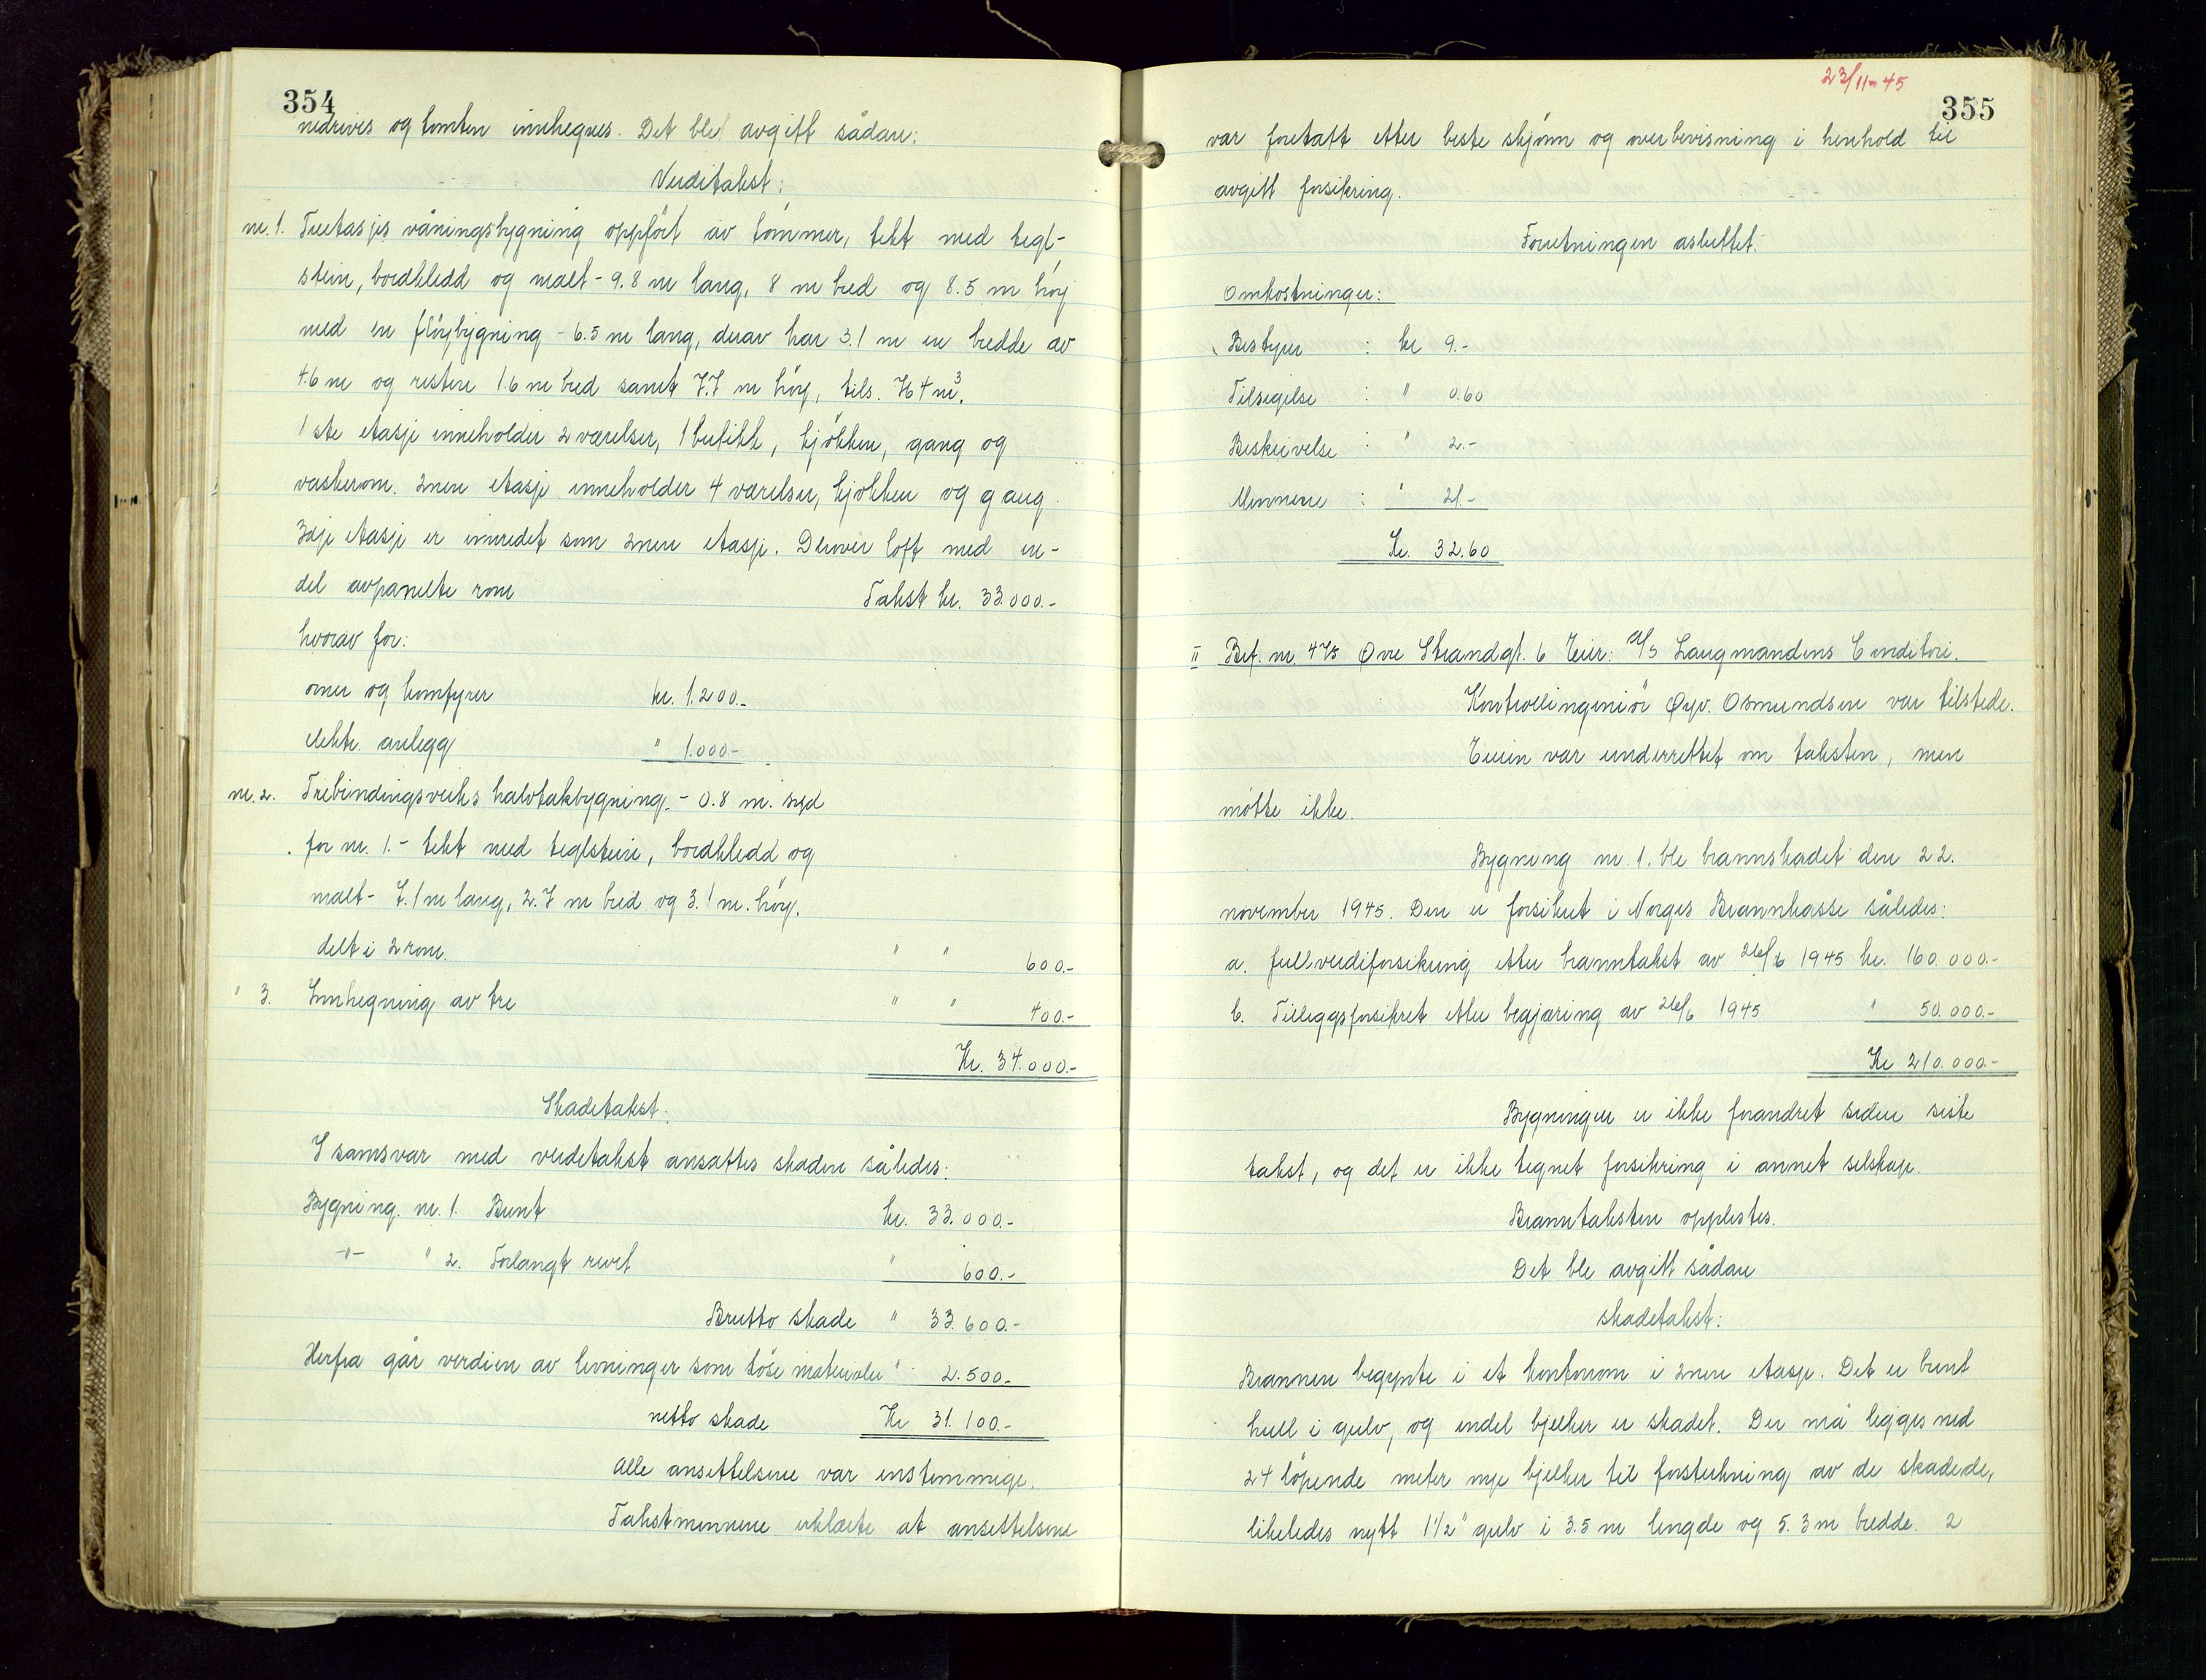 354
nedrives og tomten innhegnes. Det blel avgitt sådan:
Verditakst:
nr. 1. Treetasjes våningsbygning oppfört av tömmer, tekt med tegl-
stein, bordkledd og malt - 9.8 m lang, 8 m bred og 8.5 m höy
med en flöybygning - 6.5 m lang, derav har 3.1 m en bredde av
4.6 m og resten 1.6 m bred samt 7.7 m höy, tils. 764 m³.
1ste etasje inneholder 2 værelser, 1 butikk, kjökken, gang og
vaskerom. 2nen etasje inneholder 4 værelser, kjökken og gang.
3dje etasje er innredet som 2nen etasje. Derover loft med en-
del avpanelte rom Takst kr. 33.000.-
hvorav for:
ovner og komfyrer kr. 1.200.-
elektr. anlegg " 1.000.-
nr. 2. Trebindingsverks halvtakbygning. - 0.8 m. syd
for nr. 1. - tekt med teglstein, bordkledd og
malt - 7.1 m lang, 2.7 m bred og 3.1 m. höy.
delt i 2 rom. " " 600.-
" 3. Innhegning av tre " " 400.-
Kr. 34.000.-
Skadetakst.
I samsvar med verditakst ansattes skaden således:
Bygning. nr. 1. Brent kr. 33.000.-
-"- " 2. Forlangt revet " 600.-
Brutto skade " 33.600.-
Herfra går verdien av levninger som löse materialer " 2.500.-
netto skade Kr 31.100.-
Alle ansettelsene var enstemmige.
Takstmennene erklærte at ansettelsene
23/11-45
355
var foretatt etter beste skjönn og overbevisning i henhold til
avgitt forsikring.
Forretningen asluttet.
Omkostninger:
Bestyrer : kr 9.-
Tilsigelse : " 0.60
Beskrivelse : " 2.-
Mennene : " 21.-
Kr. 32.60
II Bef. nr. 475 Övre Strandgt. 6 Eier: A/S Laugmandens Conditori.
Kontrollingeniör Öyv. Osmundsen var tilstede.
Eieren var underrettet om taksten, men
mötte ikke.
Bygning nr. 1. ble brannskadet den 22.
november 1945. Den er forsikret i Norges Brannkasse således:
a. fullverdiforsikring etter branntakst av 26/6 1945 kr. 160.000.-
b. Tilleggsforsikret etter begjæring av 26/6 1945 " 50.000.-
Kr 210.000.-
Bygningen er ikke forandret siden siste
takst, og det er ikke tegnet forsikring i annet selskap.
Branntaksten opplestes.
Det ble avgitt sådan
skadetakst:
Brannen begynte i et kontorrom i 2nen etasje. Det er brent
hull i gulv, og endel bjelker er skadet. Der må legges ned
24 löpende meter nye bjelker til forsterkning av de skadede,
likeledes nytt 1 1/2" gulv i 3.5 m lengde og 5.3 m bredde. 2